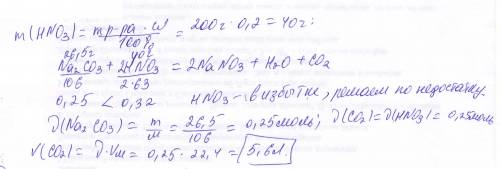 m(HNO₃) = mр-ра · ω / 100% = 200г · 0,2 = 40г;
26,5г 40г
Na₂CO₃ + 2HNO₃ = 2NaNO₃ + H₂O + CO₂
106 2·63
0,25 < 0,32 HNO₃ - в избытке, решаем по недостатку.
ϑ(Na₂CO₃) = m/M = 26,5/106 = 0,25моль; ϑ(CO₂) = ϑ(HNO₃) = 0,25моль
V(CO₂) = ϑ · Vm = 0,25 · 22,4 = 5,6л.